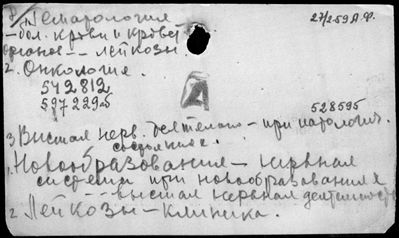 1) Гематология
27/2-59 А.Ф.
- бол. крови и кровет.
органов -- лейкозы.
2. Онкология.
А
572812
597229б
528595
3. Высшая нерв. деятельн - при патологич.
состояниях.
1. Новообразования - нервная
система при новообразованиях
-- высшая нервная деятельность
2. Лейкозы - клиника.